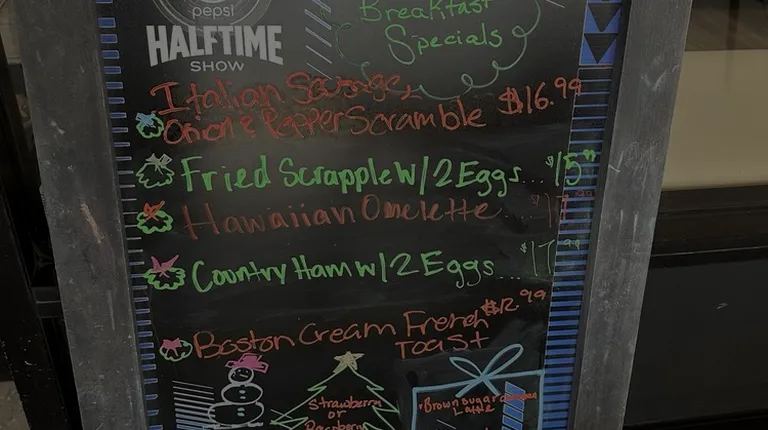 pepsi
HALFTIME
SHOW
Breakfast
Specials
Italian Sausage,
Onion & Pepper Scramble $16.99
Fried Scrapple W/2 Eggs...$15.99
Hawaiian Omelette...$17.99
Country Ham w/2 Eggs...$17.99
Boston Cream French $12.99
Toast
Strawberry
or
Raspberry
Brown sugar
Latte